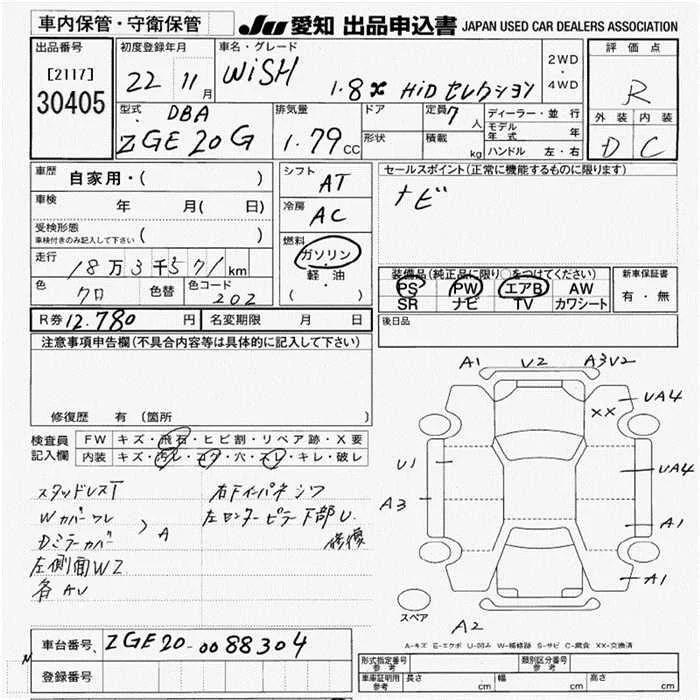 車内保管・守衛保管
JU 愛知 出品申込書 JAPAN USED CAR DEALERS ASSOCIATION
出品番号
[2117]
30405
初度登録年月
22年11月
車名・グレード
WiSH
1.8X HiD セレクション
2WD
・
4WD
評価点
R
外装 内装
D C
型式
DBA
ZGE20G
排気量
1.79 CC
ドア
形状
定員 7人
積載 kg
ディーラー・並行
モデル年式 年
ハンドル 左・右
車歴 自家用・( )
車検 年 月( 日)
受検形態
車検付きのみ記入して下さい ( )
走行 18万3千571km
色 クロ 色替 色コード 202
シフト AT
冷房 AC
燃料
ガソリン・
軽・油
( )
セールスポイント(正常に機能するものに限ります)
ナビ
装備品(純正品に限り○をつけてください)
PS PW エアB AW
SR ナビ TV カワシート
新車保証書
有・無
後日品
R券 12,780円 名変期限 月 日
注意事項申告欄(不具合内容等は具体的に記入して下さい)
修復歴 有 (箇所
検査員記入欄
FW キズ・飛石・ヒビ割・リペア跡・X要
内装 キズ・汚レ・コゲ・穴・スレ・キレ・破レ
スタッドレスT
Wカバーワレ
Dミラーカバー
> A
左側面W2
各AU
右下インパネシワ
左センターピラー下部U.
修復
A1 U2 A3U2
UA4
XX
U1
UA4
A3
A1
A1
スペア
A2
A-キズ E-エクボ U-凹み W-補修跡 S-サビ C-腐食 XX-交換済
車台番号 ZGE20-0088304
登録番号
形式指定番号 参考
類別区分番号 参考
車庫証明用 参考 長さ cm 幅 cm 高さ cm